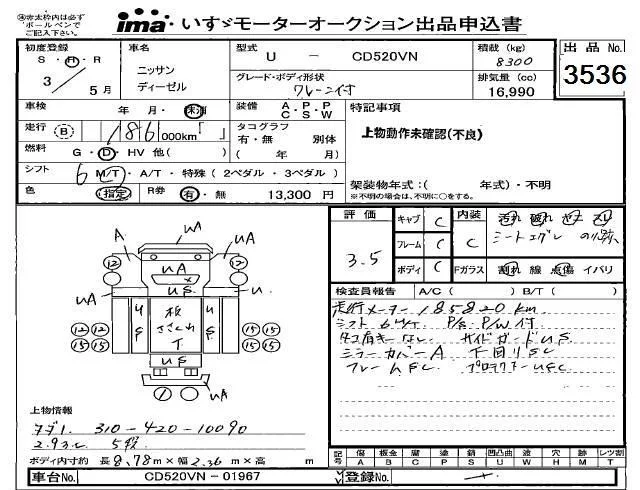 赤太枠内は必ず
ボールペンで
ご記入ください。
ima いすゞモーターオークション出品申込書
初度登録
S・H・R
3年5月
車名
ニッサン
ディーゼル
型式
U － CD520VN
グレード・ボディ形状
クレーン付
積載 (kg)
8300
排気量 (cc)
16,990
出品 No.
3536
車検 年 月・抹消
走行 (B) 186,000km「 」
燃料 G・D・HV 他( )
シフト 6 M/T・A/T・特殊 ( 2ペダル ・ 3ペダル )
色 (指定) R券 有・無 13,300 円
装備 A・P・P
C・S・W
タコグラフ
有・無 別体
( 年 月)
特記事項
上物動作未確認(不良)
架装物年式:( 年式)・不明
※不明の場合は、不明に○をする。
評価
3.5
キャブ C
フレーム C
ボディ C
内装 C
Fガラス
シートエグレ
割れ 線 点傷 イバリ
検査員報告 A/C ( ) B/T ( )
走行メーター185820km
シフト 6M/T P/S P/W付
サイドガードUS
ミラーカバーA 下回りSC
フレームSC
A
WA
UA
A
12
12
UA
UA
US
U
US
板
ささくれ
T
US
US
12 12
15 15
15 15
15 15
UA
上物情報
タダノ 310-420-10090
2.93t 5段
ボディ内寸約 長8.78m×幅2.36m×高 m
記号 傷 板金 腐 塗 錆 凹凸曲 波 穴 跡 レツ割
A B C P S U W H M T
車台No. CD520VN－01967
登録No.